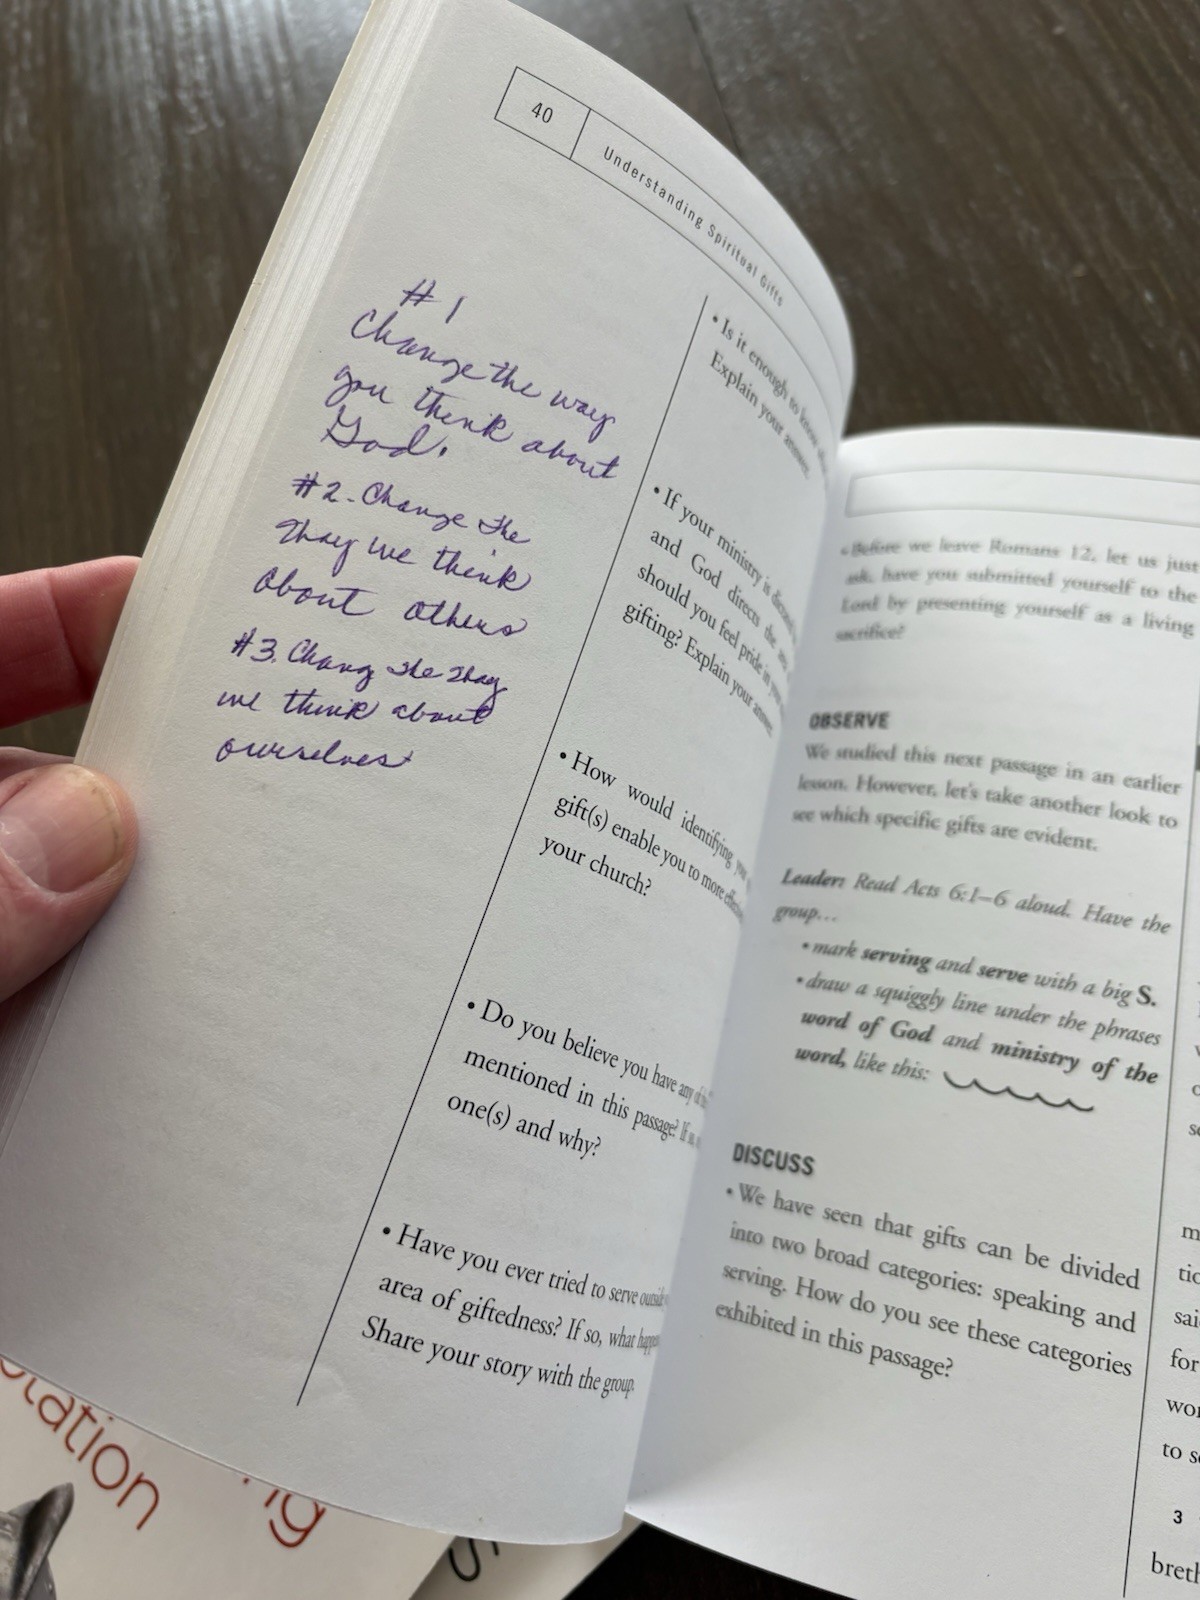 40
Understanding Spiritual Gifts
#1
Change the way
you think about
God.
#2 - Change the
Way we think
about others
#3. Chang the Way
we think about
ourselves
• Is it enough to know
Explain your answer.
• If your ministry is
and God directs the
should you feel pride in
gifting? Explain your answer.
• How would identifying
gift(s) enable you to more
your church?
• Do you believe you have any
mentioned in this passage? If
one(s) and why?
• Have you ever tried to serve outside
area of giftedness? If so, what
Share your story with the group.
• Before we leave Romans 12, let us just
ask, have you submitted yourself to the
Lord by presenting yourself as a living
sacrifice?
OBSERVE
We studied this next passage in an earlier
lesson. However, let's take another look to
see which specific gifts are evident.
Leader: Read Acts 6:1–6 aloud. Have the
group…
• mark serving and serve with a big S.
• draw a squiggly line under the phrases
word of God and ministry of the
word, like this:
DISCUSS
• We have seen that gifts can be divided
into two broad categories: speaking and
serving. How do you see these categories
exhibited in this passage?
for
to
3